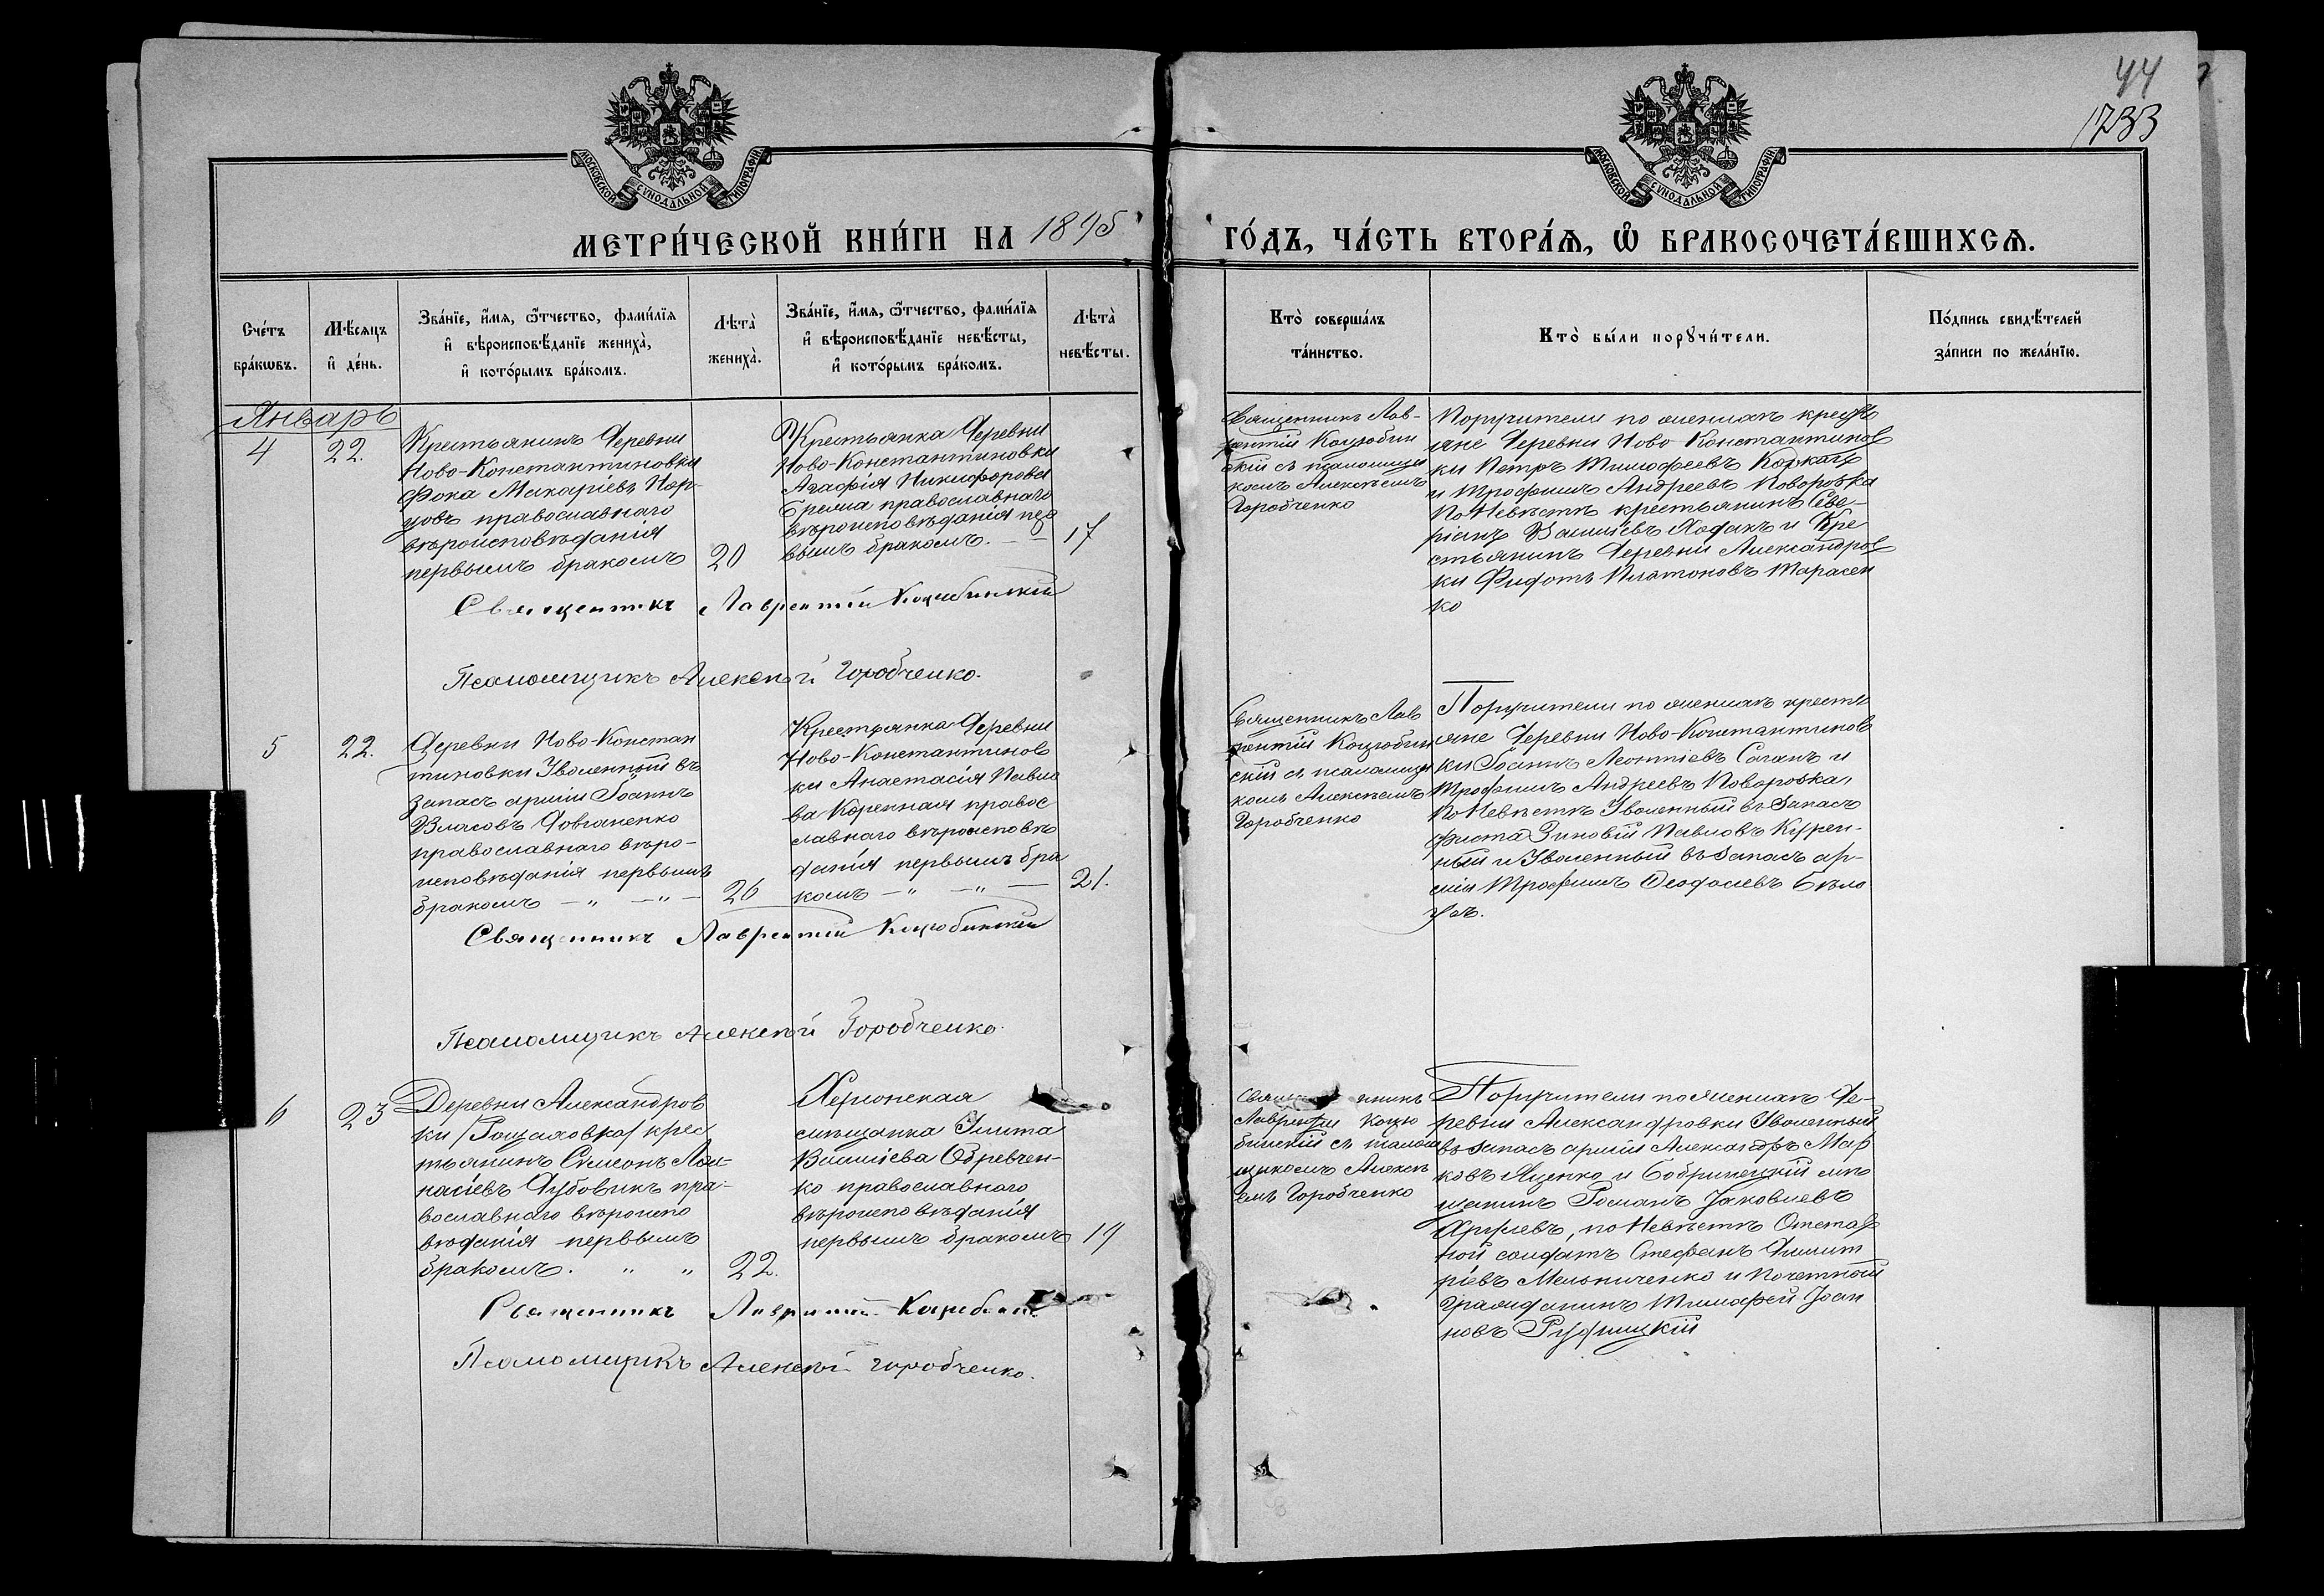 44
1733
МОСКОВСКОЙ СѴНОДАЛЬНОЙ ТИПОГРАФІИ
МОСКОВСКОЙ СѴНОДАЛЬНОЙ ТИПОГРАФІИ
МЕТРИ́ЧЕСКОЙ КНИ́ГИ НА 1895 ГО́ДЪ, ЧА́СТЬ ВТОРА́Ѧ, Ѽ БРАКОСОЧЕТА́ВШИХСѦ.
Сче́тъ
бра́кѡвъ.
Мѣ́сяцъ
и҆ де́нь.
Зва́нїе, и҆́мя, ѻ҆́тчество, фами́лїя
и҆ вѣроисповѣ́данїе жениха̀,
и҆ кото́рымъ бра́комъ.
Лѣта̀
жениха̀.
Зва́нїе, и҆́мя, ѻ҆́тчество, фами́лїя
и҆ вѣроисповѣ́данїе невѣ́сты,
и҆ кото́рымъ бра́комъ.
Лѣта̀
невѣ́сты.
Кто̀ соверша́лъ
та́инство.
Кто̀ бы́ли порꙋчи́тели.
По́дпись свидѣ́телей
за́писи по жела́нїю.
Январь
4
22.
Крестьянинъ Деревни
Ново-Константиновки
Фока Макаріевъ
православнаго
вѣроисповѣданія
первымъ бракомъ
20
Крестьянка Деревни
Ново-Константиновки
Агафія Никифорова
православнаго
вѣроисповѣданія пер
вымъ бракомъ.
17
Священникъ Лав-
рентій Коцюбин
скій съ псаломщи
комъ Алексѣемъ
Горобченко
Поручители по женихѣ кресть
яне Деревни Ново-Константинов
ки Петръ Тимофеевъ
и Трофимъ Андреевъ Коворотка
По Невѣстѣ крестьянинъ Све-
ріанъ Василіевъ и Кре
стьянинъ Деревни Александров
ки Федотъ Платоновъ Тарасен
ко
Священникъ Лаврентій Коцюбинскій
Псаломщикъ Алексѣй Горобченко.
5
22.
Деревни Ново-Констан
тиновки Уволенный въ
запасъ арміи Іоаннъ
Власовъ Довганенко
православнаго вѣро-
исповѣданія первымъ
бракомъ — " — " —
26
Крестьянка Деревни
Ново-Константинов
ки Анастасія Павло
ва Куренная правос
лавнаго вѣроисповѣ
данія первымъ бра
комъ — " — " —
21.
Священникъ Лав
рентій Коцюбин
скій съ псаломщи
комъ Алексѣемъ
Горобченко
Поручители по женихѣ кресть
яне Деревни Ново-Константинов
ки Іоаннъ Леонтіевъ Соганъ и
Трофимъ Андреевъ Коворотка,
По Невѣстѣ Уволенный въ Запасъ
флота Зиновій Павловъ Курен-
ный и Уволенный въ Запасъ ар-
міи Трофимъ Феодосіевъ Бѣло
усъ.
Священникъ Лаврентій Коцюбинскій
Псаломщикъ Алексѣй Горобченко.
6
23
Деревни Александров
ки крес
тьянинъ Симеонъ Афа-
насіевъ Дубовикъ пра-
вославнаго вѣроиспо
вѣданія первымъ
бракомъ. " "
22.
Херсонская
мѣщанка
Василіева
ко православнаго
вѣроисповѣданія
первымъ бракомъ
19
Священникъ
Лаврентій Коцю
бинскій съ псалом
щикомъ Алексѣ
емъ Горобченко
Поручители по женихѣ Де-
ревни Александровки Уволенный
въ запасъ арміи Александръ Мар
ковъ Яценко и Бобринецкій мѣ
щанинъ Романъ Іаковлевъ
по Невѣстѣ Отстав
ной солдатъ Стефанъ Димит
ріевъ Мельниченко и Почетный
гражданинъ Тимофей Іоан
новъ Рудницкій
Священникъ Лаврентій Коцюбинскій
Псаломщикъ Алексѣй Горобченко.